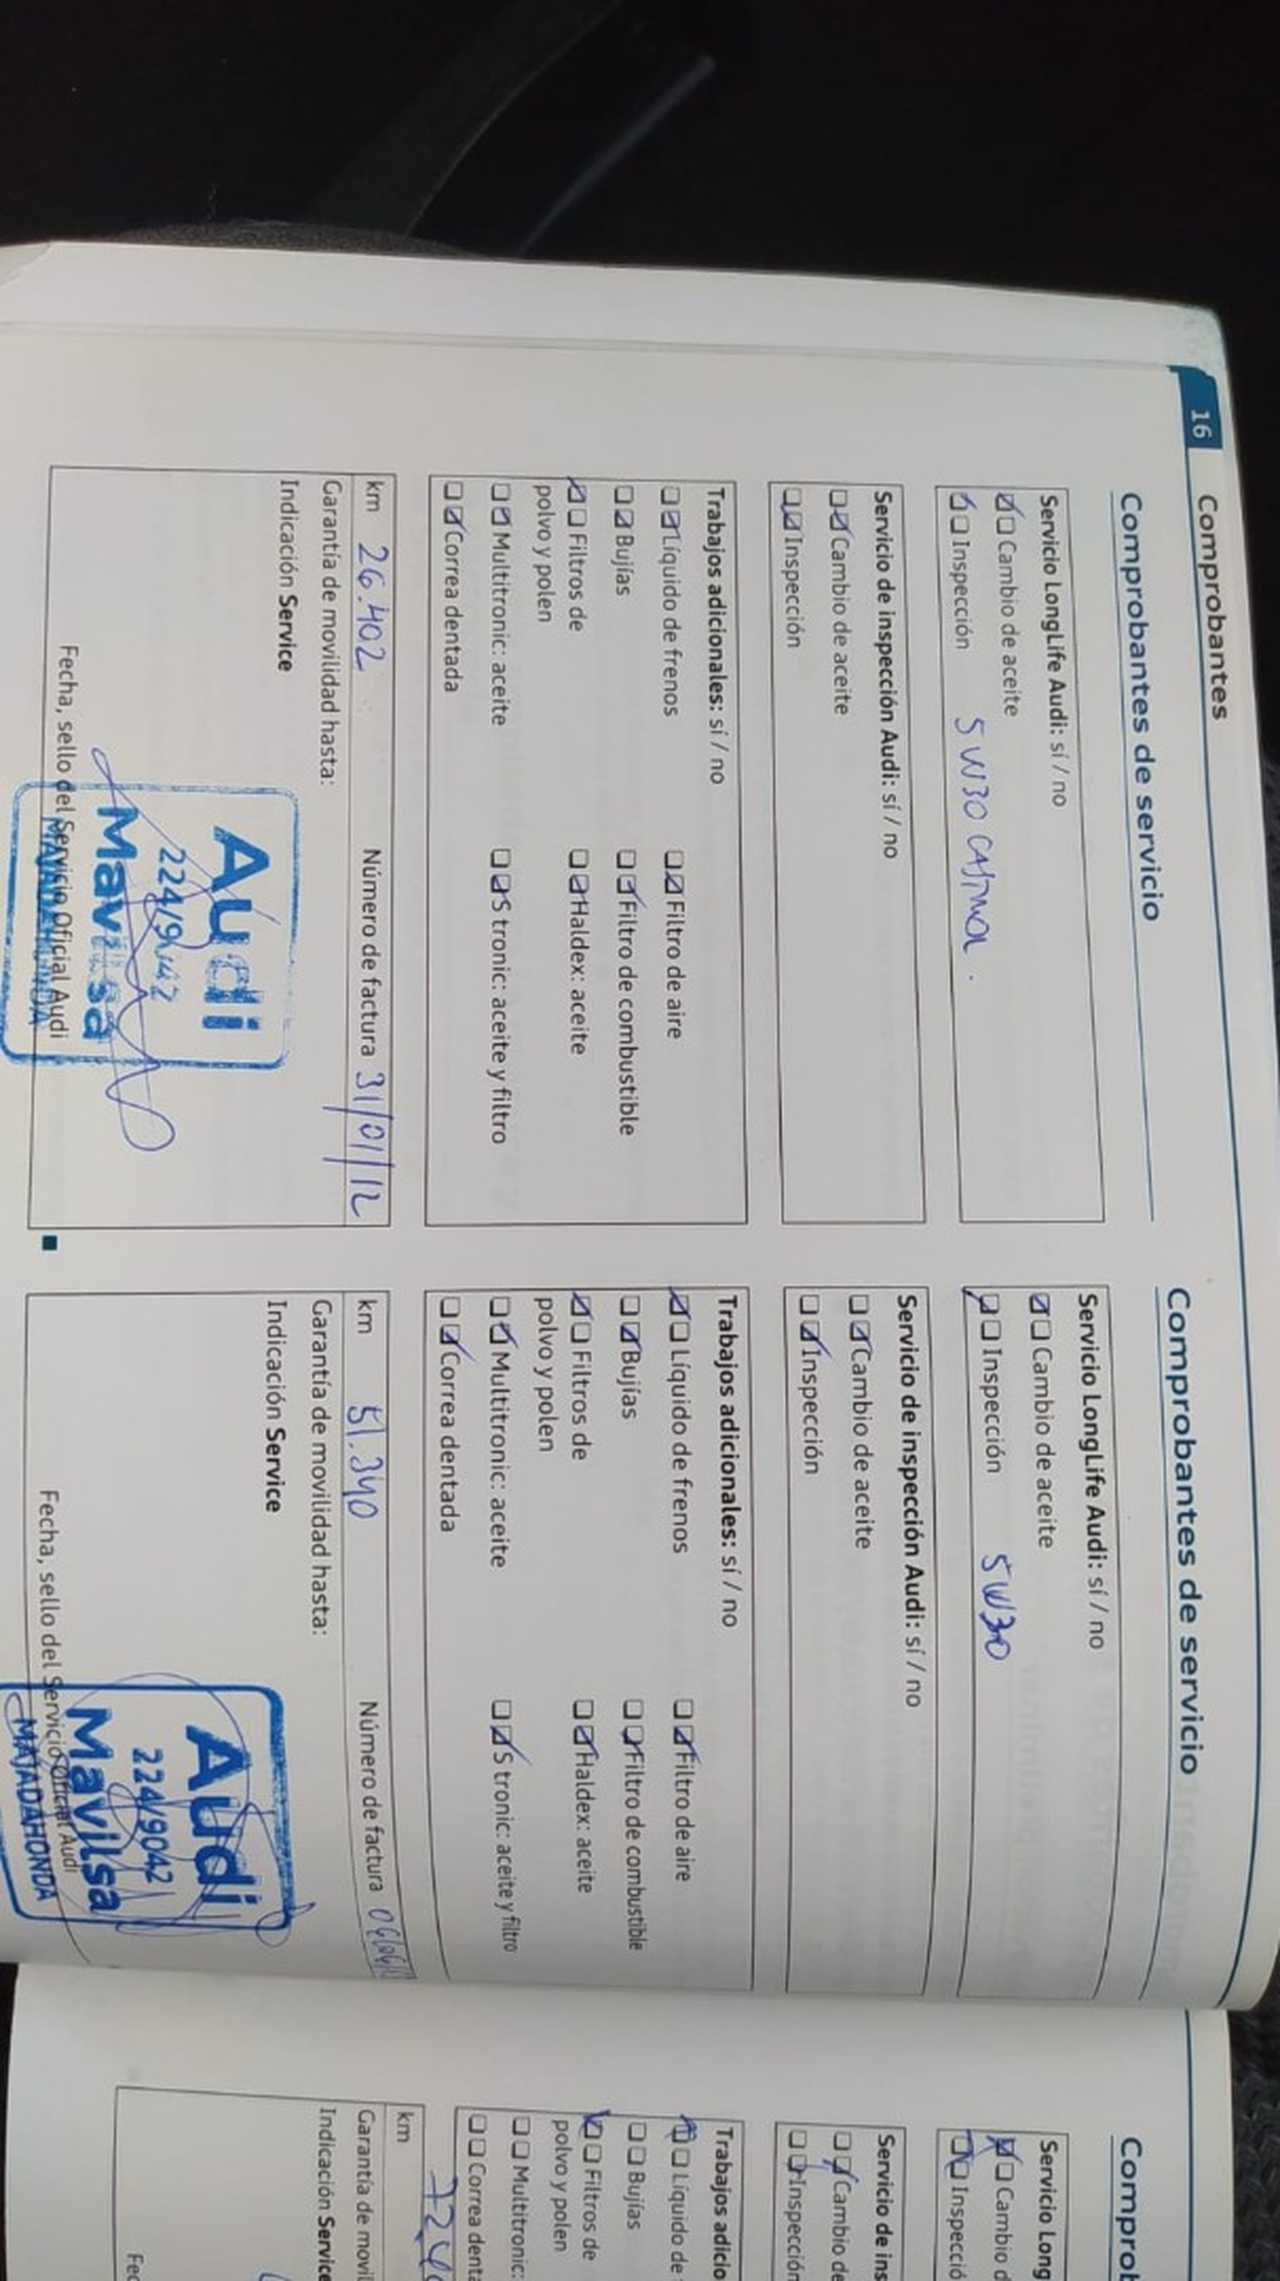 16 Comprobantes
Comprobantes de servicio
Servicio LongLife Audi: sí / no
Cambio de aceite
Inspección 5W30 CASTROL.
Servicio de inspección Audi: sí / no
Cambio de aceite
Inspección
Trabajos adicionales: sí / no
Líquido de frenos Filtro de aire
Bujías Filtro de combustible
Filtros de Haldex: aceite
polvo y polen
Multitronic: aceite S tronic: aceite y filtro
Correa dentada
km 26.402 Número de factura 31/01/12
Garantía de movilidad hasta:
Indicación Service
Audi
224/9042
Mavilsa
MAJADAHONDA
Fecha, sello del Servicio Oficial Audi
Comprobantes de servicio
Servicio LongLife Audi: sí / no
Cambio de aceite
Inspección 5W30
Servicio de inspección Audi: sí / no
Cambio de aceite
Inspección
Trabajos adicionales: sí / no
Líquido de frenos Filtro de aire
Bujías Filtro de combustible
Filtros de Haldex: aceite
polvo y polen
Multitronic: aceite S tronic: aceite y filtro
Correa dentada
km 51.340 Número de factura
Garantía de movilidad hasta:
Indicación Service
Audi
224/9042
Mavilsa
MAJADAHONDA
Fecha, sello del Servicio Oficial Audi
Comprob
Servicio Long
Cambio d
Inspecció
Servicio de ins
Cambio de
Inspección
Trabajos adicio
Líquido de
Bujías
Filtros de
polvo y polen
Multitronic:
Correa denta
km 72.4
Garantía de movil
Indicación Service
Fec